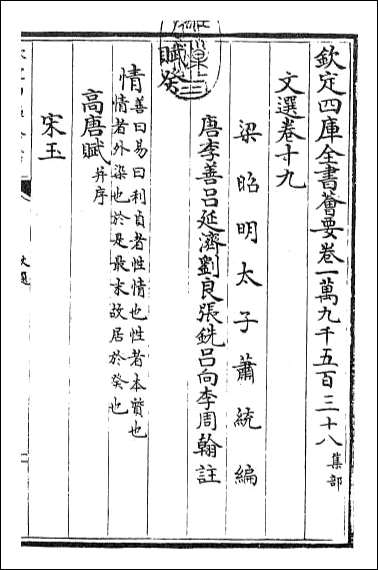 欽定四庫全書薈要卷一萬九千五百三十八集部
文選卷十九
梁昭明太子蕭統編
唐李善呂延濟劉良張銑呂向李周翰註
賦癸
情善曰易曰利貞者性情也性者本質也
情者外染也於是最末故居於癸也
高唐賦并序
宋玉
文選